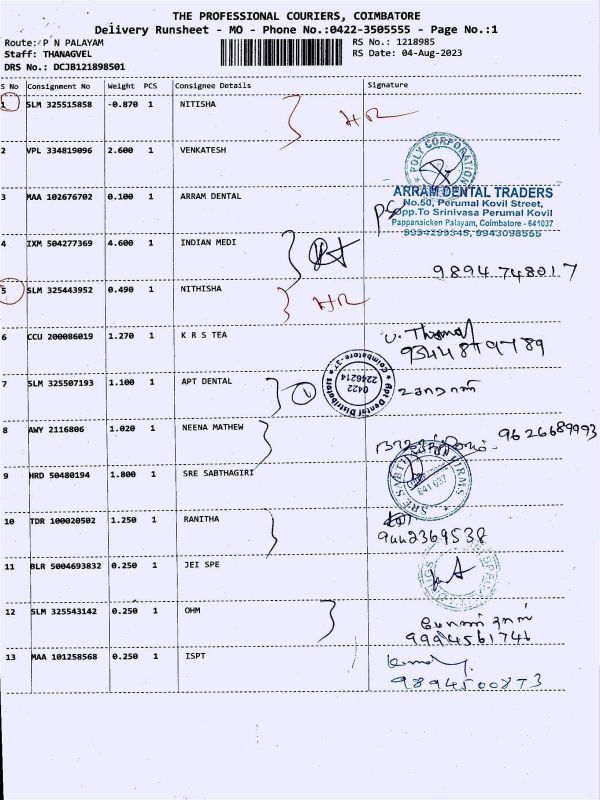 THE PROFESSIONAL COURIERS, COIMBATORE
Delivery Runsheet - MO - Phone No.:0422-3505555 - Page No.:1
Route: P N PALAYAM
RS No.: 1218985
Staff: THANAGVEL
RS Date: 04-Aug-2023
DRS No.: DCJB121898501
S No Consignment No Weight PCS Consignee Details Signature
1 SLM 325515858 -0.870 1 NITISHA
HR
2 VPL 334819096 2.600 1 VENKATESH
POLY CORPORATION
3 MAA 102676702 0.100 1 ARRAM DENTAL
ARRAM DENTAL TRADERS
No.50, Perumal Kovil Street,
Opp.To Srinivasa Perumal Kovil
Pappanaicken Palayam, Coimbatore - 641037
4 IXM 504277369 4.600 1 INDIAN MEDI
9894748017
5 SLM 325443952 0.490 1 NITHISHA
HR
6 CCU 200086019 1.270 1 K R S TEA
7 SLM 325507193 1.100 1 APT DENTAL
Apt Dental Distributors
Coimbatore-37
0422
2246214
8 AWY 2116806 1.020 1 NEENA MATHEW
9626689993
9 HRD 50480194 1.800 1 SRE SABTHAGIRI
641 037
10 TDR 100020502 1.250 1 RANITHA
9442369538
11 BLR 5004693832 0.250 1 JEI SPE
12 SLM 325543142 0.250 1 OHM
9994561746
13 MAA 101258568 0.250 1 ISPT
9894500873